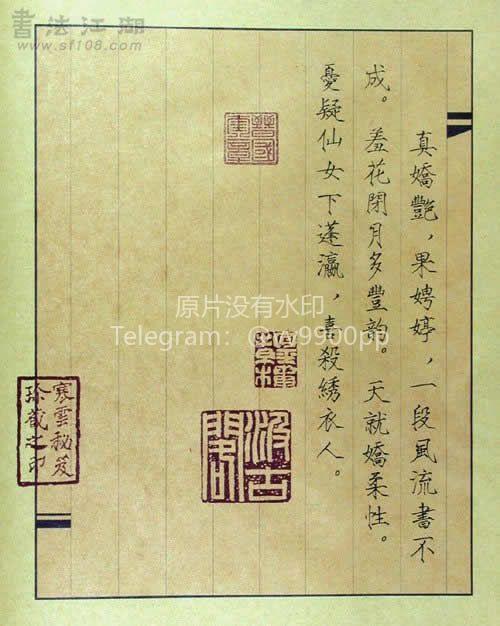 書法江湖
www.sf108.com
真嬌艷，果娉婷，一段風流書不
成。羞花閉月多豐韵。天就嬌柔性。
憂疑仙女下蓬瀛，喜殺綉衣人。
原片没有水印
寒雲秘笈
珍藏之印